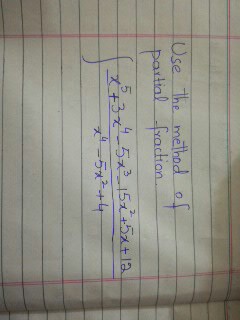 Use the method of
partial fraction.
∫ x⁵+3x⁴-5x³-15x²+5x+12
x⁴-5x²+4